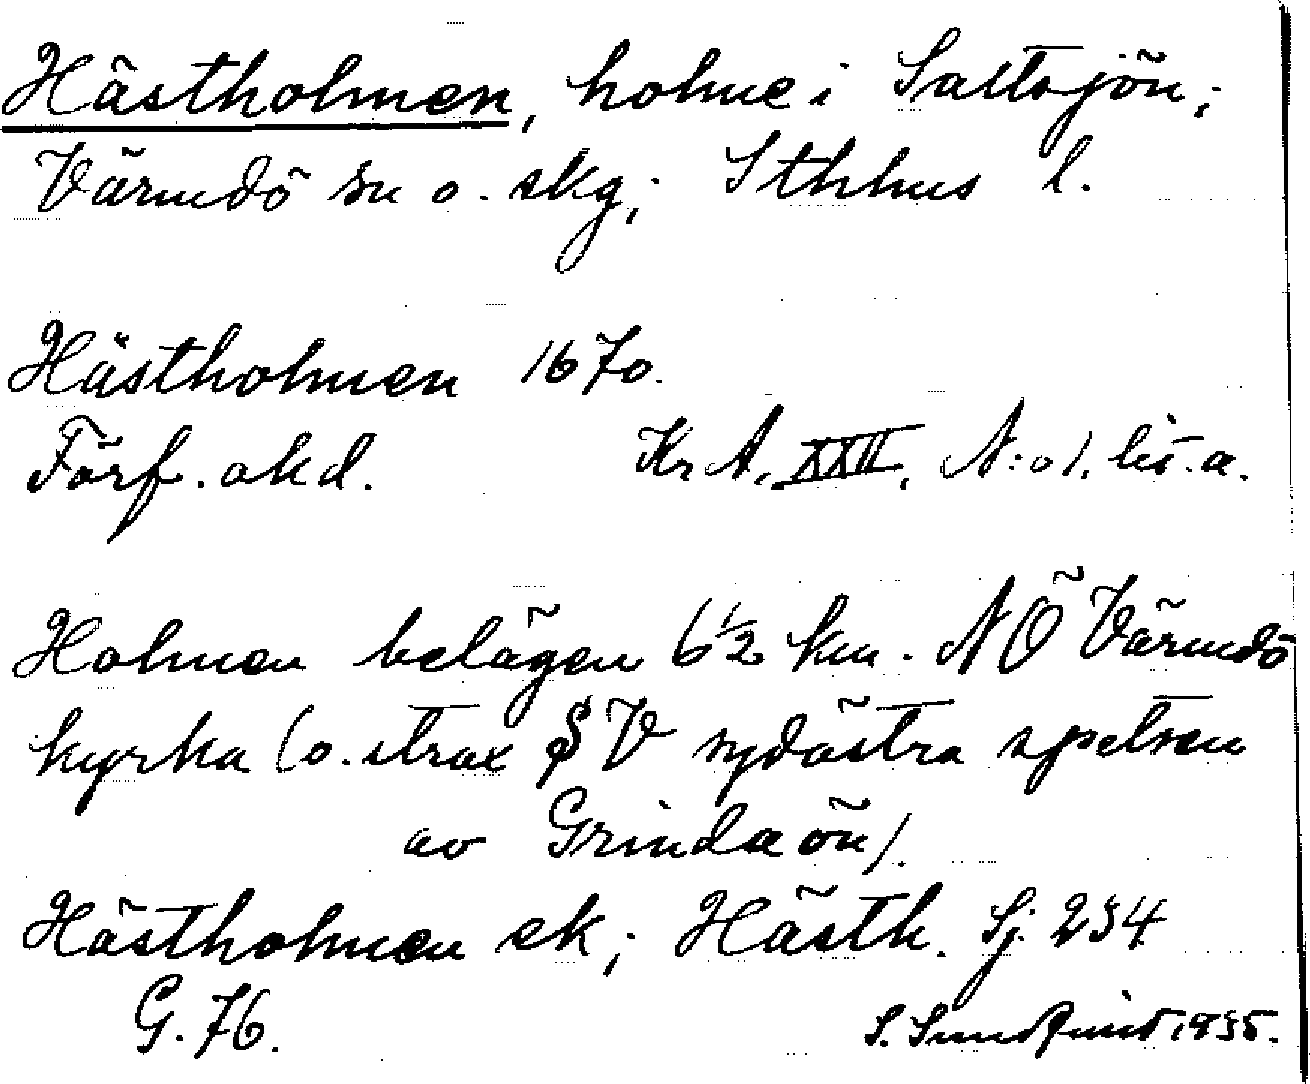 Hästholmen, holme i Saltsjön;
Värmdö sn o. skg; Sthlms l.
Hästholmen 1670.
Förf. okd. Kr A. XXII, N:o 1. lit. a.
Holmen belägen 6½ km. NÖ Värmdö
kyrka (o. strax S V sydöstra spetsen
av Grindaön).
Hästholmen ek; Hästh. Sj. 234
G. 76. S. Sundquist 1935.